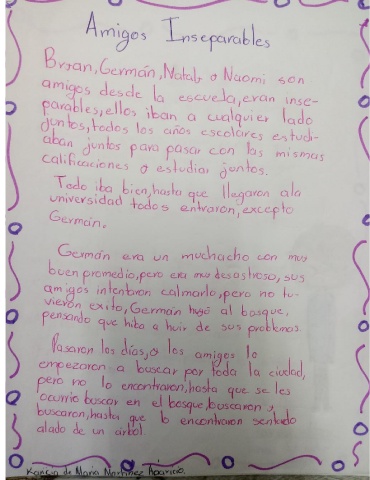 Amigos Inseparables
Bryan, Germán, Nataly o Naomi son
amigos desde la escuela, eran inse-
parables, ellos iban a cualquier lado
juntos, todos los años escolares estudi-
aban juntos para pasar con las mismas
calificaciones o estudiar juntos.
Todo iba bien, hasta que llegaron ala
universidad todos entraron, excepto
Germán.
Germán era un muchacho con muy
buen promedio, pero era muy desastroso, sus
amigos intentaron calmarlo, pero no tu-
vieron exito, Germán huyó al bosque,
pensando que hiba a huir de sus problemas.
Pasaron los días, o los amigos lo
empezaron a buscar por toda la ciudad,
pero no lo encontraron, hasta que se les
ocurrio buscar en el bosque, buscaron y
buscaron, hasta que lo encontraron sentado
alado de un árbol.
de María Martínez Aparicio.